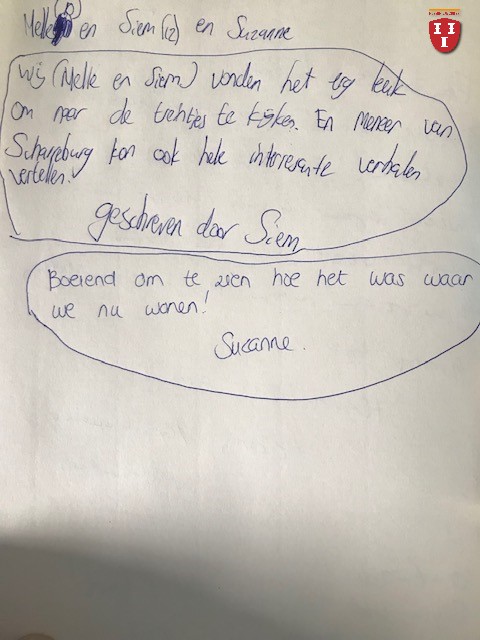 Melle en Siem (12) en Suzanne
Wij (Melle en Siem) vonden het erg leuk
om naar de treintjes te kijken. En meneer van
Scharreburg kon ook hele interresante verhalen
vertellen.
geschreven door Siem
Boeiend om te zien hoe het was waar
we nu wonen!
Suzanne.